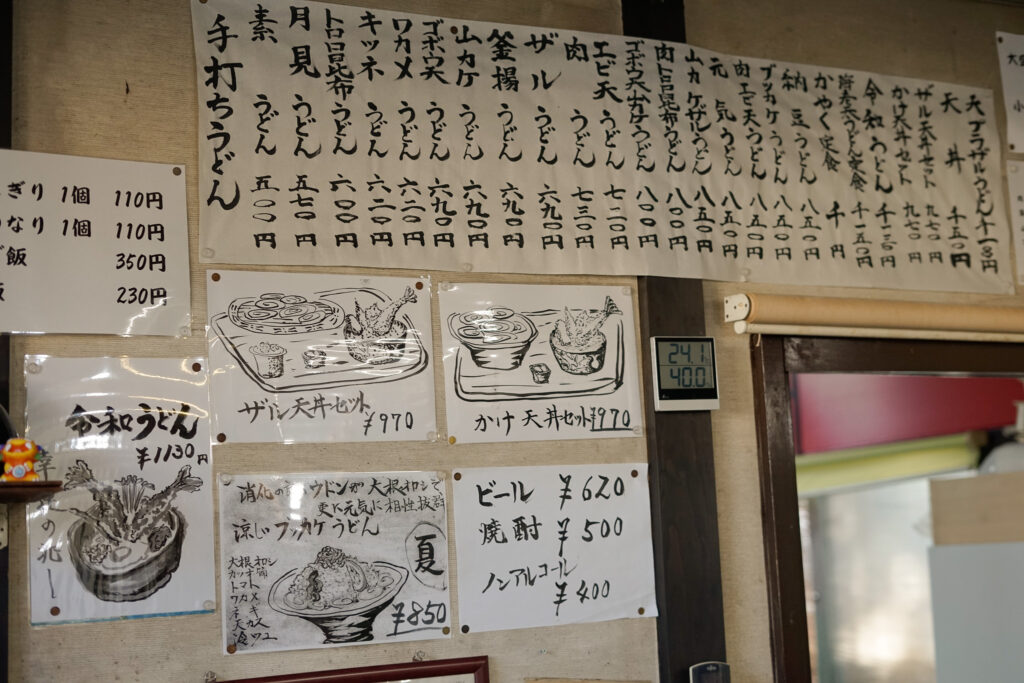 手打ちうどん
素うどん 五〇〇円
月見うどん 五七〇円
トロロ昆布うどん 六〇〇円
キツネうどん 六二〇円
ワカメうどん 六二〇円
ゴボウ天うどん 六九〇円
山カケうどん 六九〇円
釜揚うどん 六九〇円
ザルうどん 六九〇円
肉うどん 七三〇円
エビ天うどん 七二〇円
ゴボウ天山カケうどん 八〇〇円
肉トロロ昆布うどん 八〇〇円
山カケザルうどん 八五〇円
元気うどん 八五〇円
肉エビ天うどん 八五〇円
ブッカケうどん 八五〇円
納豆うどん 八五〇円
かやく定食 千円
うどん定食 千一五〇円
令和うどん 千一三〇円
かけ天丼セット 九七〇円
ザル天丼セット 九七〇円
天丼 千五〇円
天プラザルうどん 千一三〇円
ぎり 1個 110円
なり 1個 110円
飯 350円
飯 230円
ザル天丼セット
¥970
かけ天丼セット ¥970
24.1
40.0
令和うどん
¥1130円
消化の ウドンが大根オロシで
更に元気に相性抜群
涼しいブッカケうどん
夏
大根オロシ
カツオ節
トマト
ワカメ
ネギ
天カス
温ツユ
¥850
ビール ¥620
焼酎 ¥500
ノンアルコール
¥400
大
小